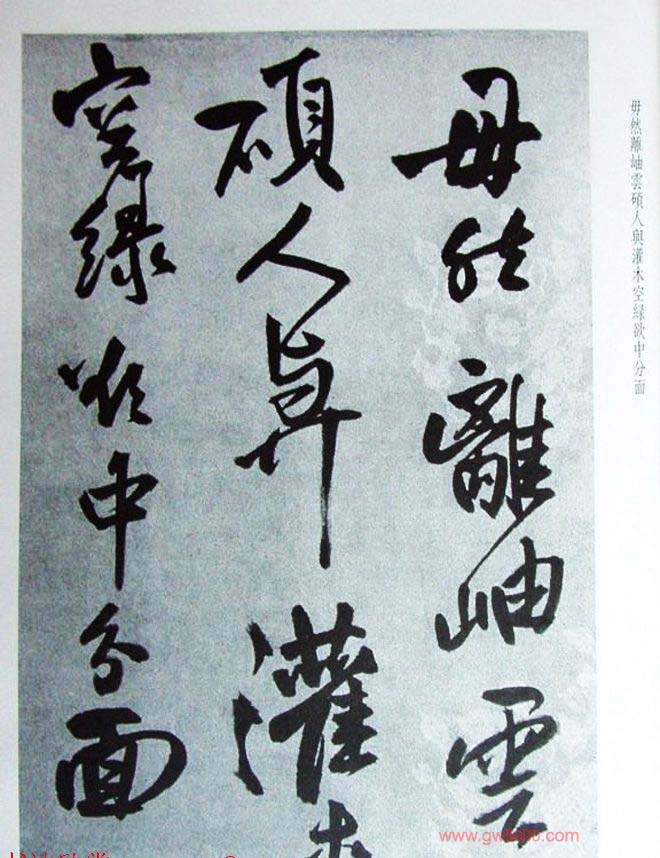 毋然離岫雲
碩人與灌木
空緑欲中分面
毋然離岫雲碩人與灌木空緑欲中分面